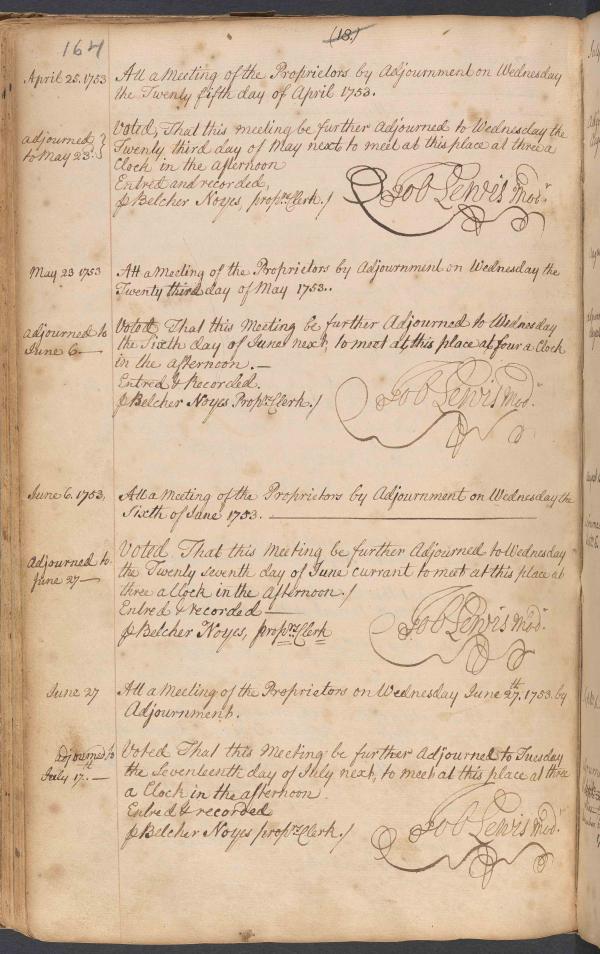 164
(18.)
April 25. 1753
Att a Meeting of the Proprietors by Adjournment on Wednesday
the Twenty fifth day of April 1753.
adjourned
to May 23.
Voted, That this meeting be further Adjourned to Wednesday the
Twenty third day of May next to meet at this place at three a
Clock in the afternoon
Entred and recorded,
⅌ Belcher Noyes, proprs. Clerk./
Job Lewis Modr.
May 23 1753
Att a Meeting of the Proprietors by Adjournment on Wednesday the
Twenty third day of May 1753..
adjourned to
June 6.—
Voted, That this Meeting be further Adjourned to Wednesday
the Sixth day of June next, to meet at this place at four a Clock
in the afternoon.—
Entred & Recorded.
⅌ Belcher Noyes Proprs. Clerk./
Job Lewis Modr.
June 6. 1753,
Att a Meeting of the Proprietors by Adjournment on Wednesday the
Sixth of June 1753.
Adjourned to
June 27—
Voted. That this Meeting be further Adjourned to Wednesday
the Twenty seventh day of June currant to meet at this place at
three a Clock in the Afternoon./
Entred & recorded—
⅌ Belcher Noyes, proprs. Clerk
Job Lewis Modr.
June 27
Att a Meeting of the Proprietors on Wednesday June 27th. 1753. by
Adjournment.
Adjourned to
July 17th.—
Voted That this Meeting be further Adjourned to Tuesday
the Seventeenth day of July next, to meet at this place at three
a Clock in the afternoon
Entred & recorded
⅌ Belcher Noyes proprs. Clerk./
Job Lewis Modr.